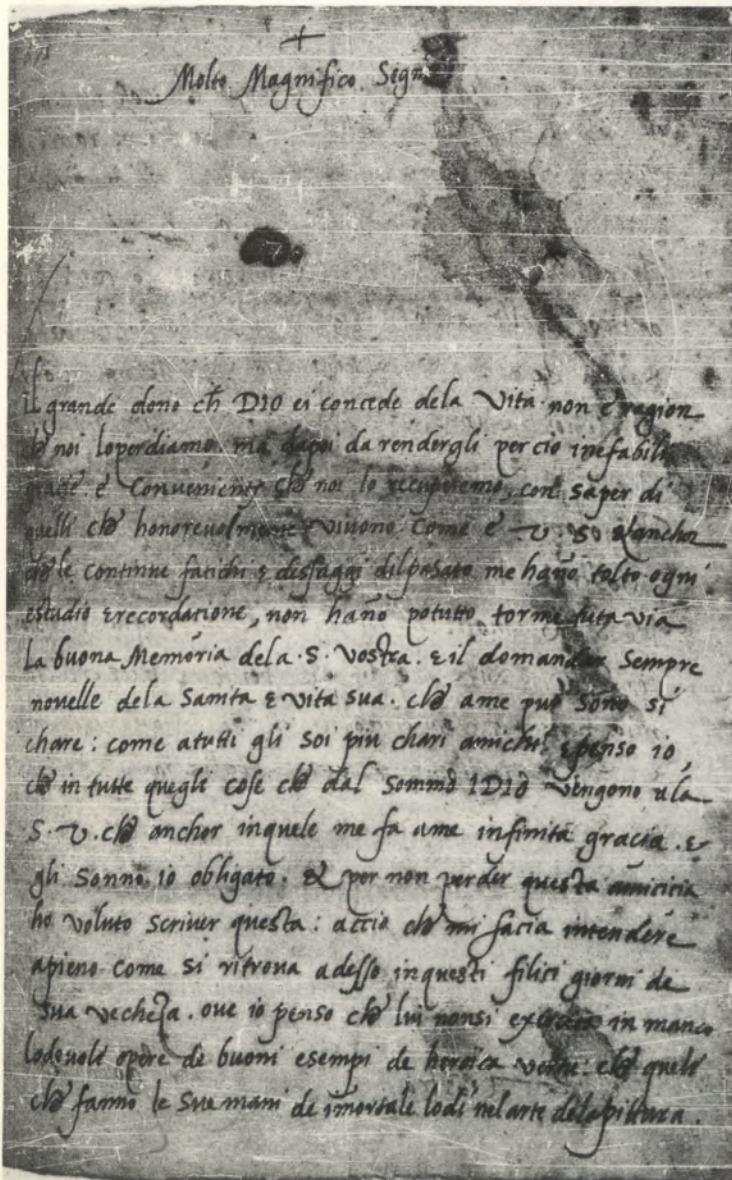 +
Molto Magnifico Segn
il grande dono ch DIO ci concede dela Vita non è ragion
che noi loperdiamo. ma dapoi da rendergli per cio inefabili
gracie. è Conveniente che noi lo recuperemo, con saper di
quelli che honorevolmente vivono come è v. S. & anchor
che le continue fatichi & dessaggi dil pasato me hano tolto ogni
estudio & recordatione, non hano potutto torme tuta via
la buona Memória dela .S. Vostra. & il domandar Sempre
novelle dela Sanita & vita sua. che ame può sono si
chare: come atutti gli soi piu chari amichi. & penso io,
che in tutte quegli cose che dal Sommo IDIO vengono ala
S. V. che anchor inquele me fa ame infinita gracia. &
gli Sonno io obligato. & per non perder questa amicicia
ho voluto scriver questa: accio che mi facia intendere
apieno come si ritrova adesso inquesti filici giorni de
sua vecheza. ove io penso che lui nonsi exercite in manco
lodevole opere de buoni esempi de heroica vertu: che quele
che fanno le sue mani de imortale lodi nel arte dela pittura.